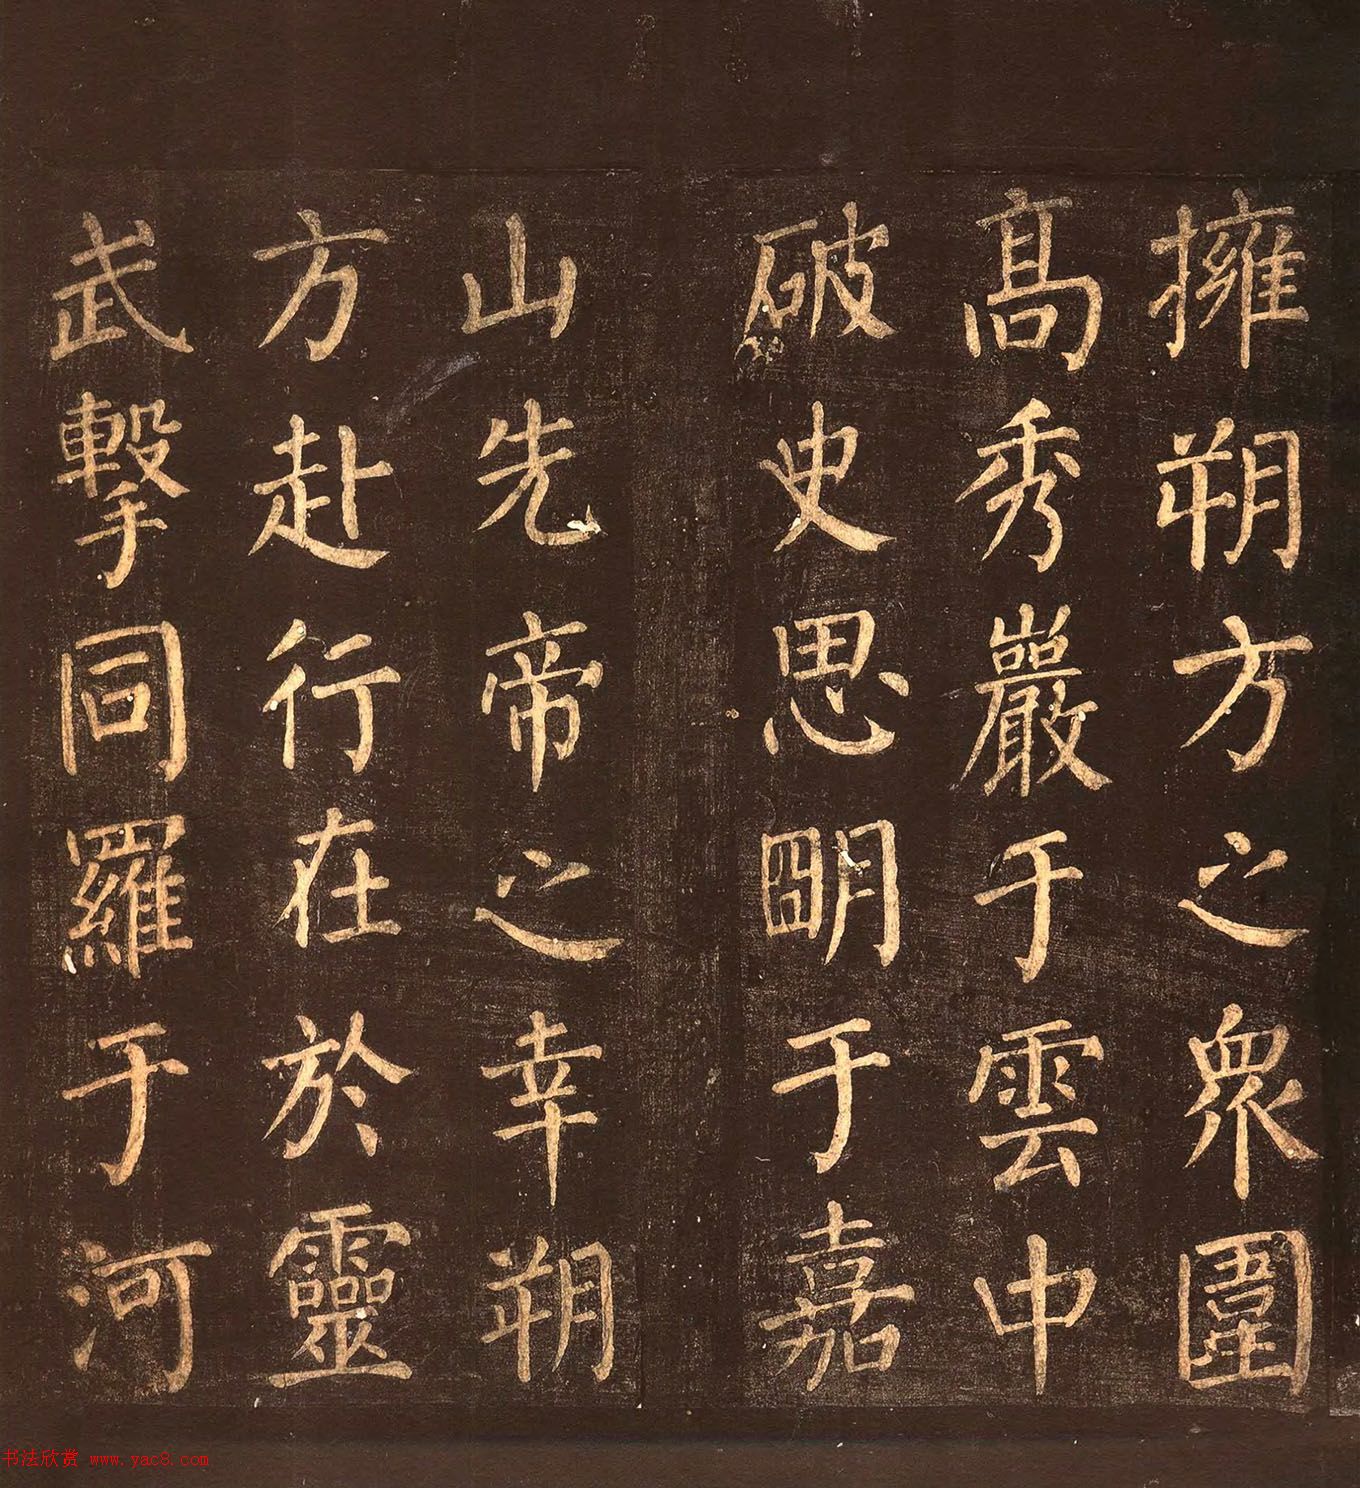 擁朔方之衆圍
高秀巖于雲中
破史思明于嘉
山先帝之幸朔
方赴行在於靈
武擊同羅于河
书法欣赏 www.yac8.com